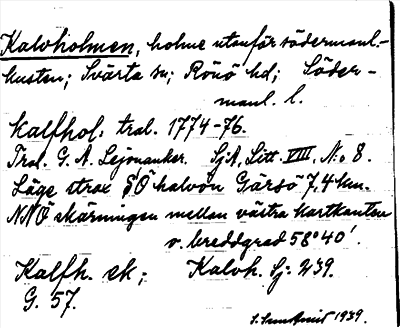 Kalvholmen, holme utanför södermanl.-
kusten; Svärta sn; Rönö hd; Söder-
manl. l.
Kalfhol: tral. 1774-76.
Trol. G. A. Lejonanker. SjA, Litt. VIII, No 8.
Läge strax SÖ halvön Gärsö 7,4 km.
NNÖ skärningen mellan västra kartkanten
o. breddgrad 58°40'.
Kalfh. ek; Kalvh. Sj: 239.
G. 57.
1939.